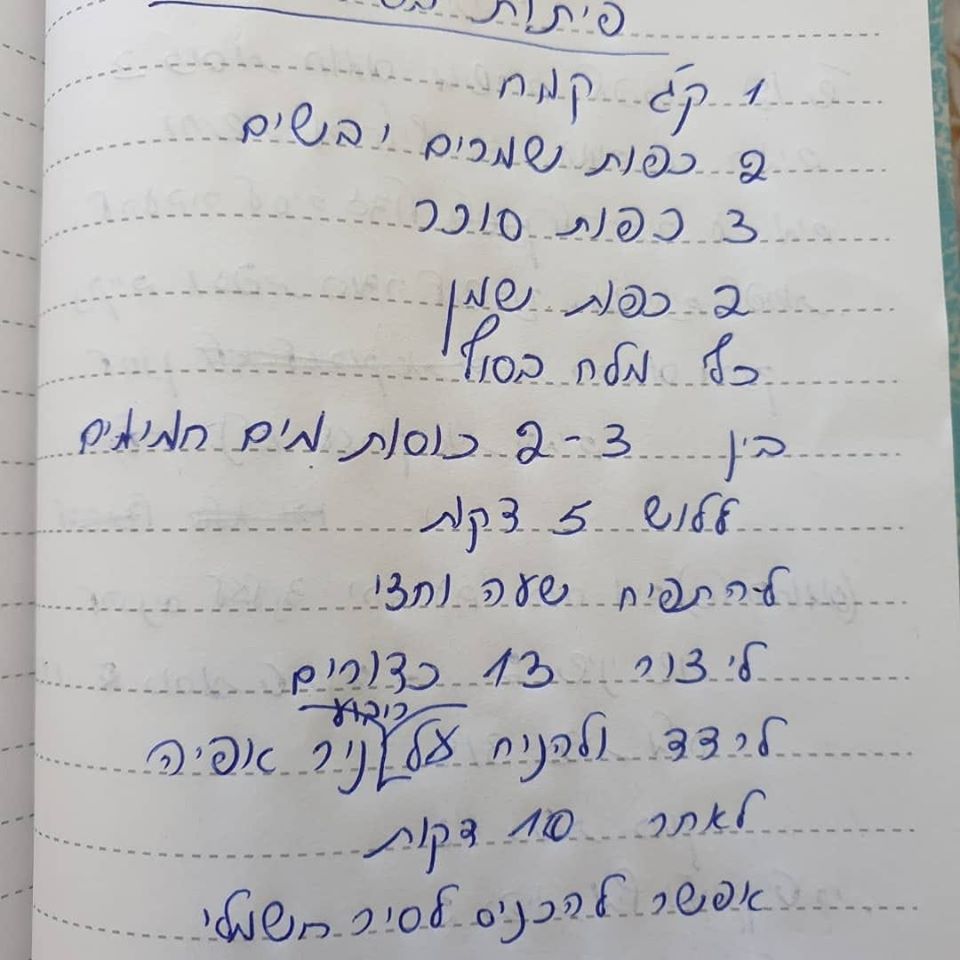 פיתות
1 ק"ג קמח
2 כפות שמרים יבשים
3 כפות סוכר
2 כפות שמן
כף מלח בסוף
בין 3-2 כוסות מים חמימים
ללוש 5 דקות
להתפיח שעה וחצי
ליצור 13 כדורים
ריבוע
לרדד ולהניח על נייר אפיה
לאחר 10 דקות
אפשר להכניס לסיר חשמלי